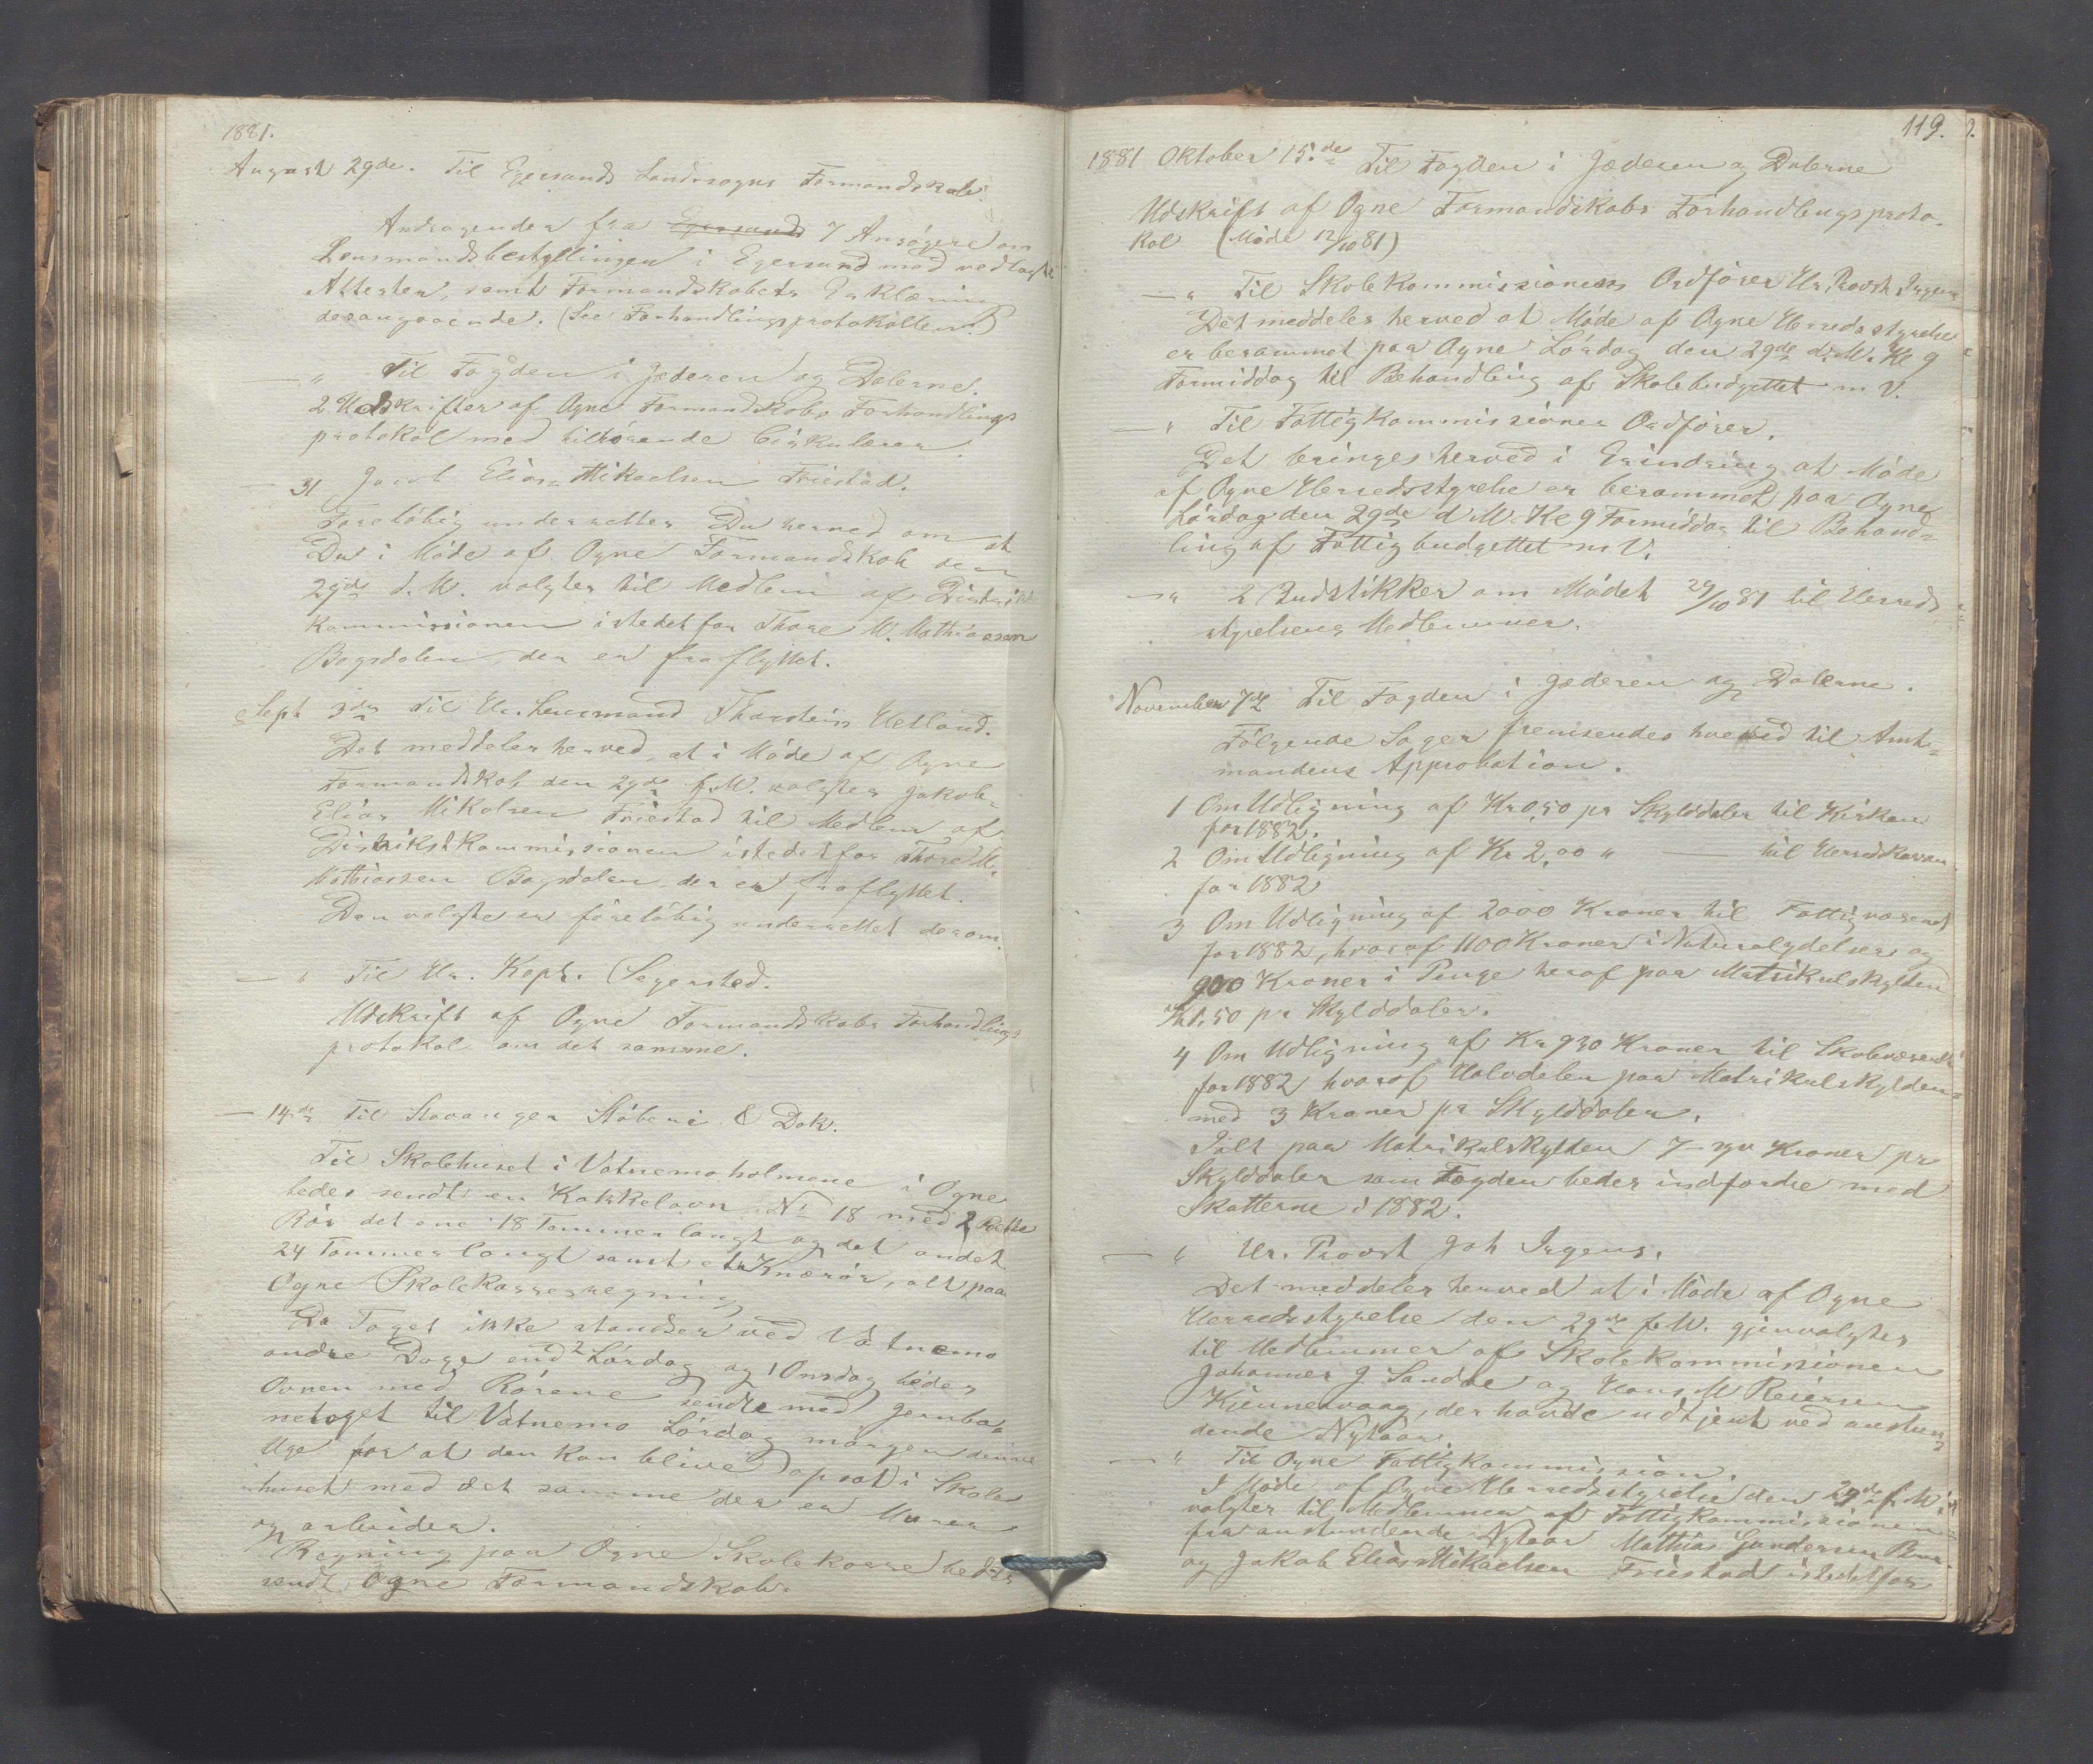 1881.
August 29de. Til Egersunds Landsogns Formandskab.
Andragender fra Egersunds 7 Ansøgere om
Lensmandsbestyllingen i Egersund med vedlagte
Attester, samt Formandskabets Erklæring
desangaaende. (See Forhandlingsprotokollen)
— " Til Fogden i Jæderen og Dalerne.
2 Udskrifter af Ogne Formandskabs Forhandlings
protokol med tilhørende Cirkulærer.
— 31 Jacob Elias Mikaelsen Friestad.
Foreløbig underrettes Du herved om at
Du i Møde af Ogne Formandskab den
29de d. M. valgtes til Medlem af Distrikts
kommissionen istedetfor Thore M. Mathiassen
Bogsdalen, der er fraflyttet.
Sept 3de Til Hr. Lensmand Thorstein Hetland.
Det meddeles herved, at i Møde af Ogne
Formandskab den 29de f. M. valgtes Jakob
Elias Mikalsen Friestad til Medlem af
Distrikskommissionen istedetfor Thore M.
Mathiassen Bogsdalen, der er fraflyttet.
Den valgte er foreløbig underrettet derom.
— " Til Hr. Kapt. Segersted.
Udskrift af Ogne Formandskabs Forhandlings
protokol om det samme.
— 14de Til Stavanger Støberi & Dok.
Til Skolehuset i Vatnemoholmene i Ogne
bedes sendt en Kakkelovn No 18 med 2 Rette
Rør det ene 18 Tommer langt og det andet
24 Tommer langt samt et Knærør, alt paa
Ogne Skolekasses regning
Da Toget ikke standser ved Vatnemo
andre Dage end Lørdag og Onsdag bedes
Ovnen med Rørene sendte med Jernba-
netoget til Vatnemo Lørdag morgen denne
Uge for at den kan blive opsat i Skole
huset med det samme der er Murer
og arbeider.
Regning paa Ogne Skolekasse bedes
sendt Ogne Formandskab.
119.
1881 Oktober 15.de Til Fogden i Jæderen og Dalerne
Udskrift af Ogne Formandskabs Forhandlingsproto-
kol (Møde 12/10 81)
— " Til Skolekommissionens Ordfører Hr. Provst Irgens
Det meddeles herved at Møde af Ogne Herredsstyrelse
er berammet paa Ogne Lørdag den 29de d. M. Kl 9
Formiddag til Behandling af Skolebudgettet m V.
— " Til Fattigkommissionens Ordfører.
Det bringes herved i Erindring at Møde
af Ogne Herredsstyrelse er berammet paa Ogne
Lørdag den 29de d. M. Kl 9 Formiddag til Behand-
ling af Fattigbudgettet m V.
— " 2 Budstikker om Mødet 29/10 81 til Herreds
styrelsens Medlemmer.
November 7de Til Fogden i Jæderen og Dalerne.
Følgende Sager fremsendes herved til Amt-
mandens Approbation.
1 Om Udligning af Kr 0,50 pr Skylddaler til Kirken
for 1882.
2 Om Udligning af Kr 2,00 " — til Herredskassen
for 1882
3 Om Udligning af 2000 Kroner til Fattigvæsenet
for 1882, hvoraf 1100 Kroner i Naturalydelser og
900 Kroner i Penge heraf paa Matrikulskylden
Kr 1,50 pr Skylddaler.
4 Om Udligning af Kr 930 Kroner til Skolevæsenet
for 1882 hvoraf Halvdelen paa Matrikulskylden
med 3 Kroner pr Skylddaler.
Ialt paa Matrikulskylden 7 - syv Kroner pr
Skylddaler som Fogden bedes indfordre med
Skatterne i 1882.
— " Hr. Provst Joh Irgens.
Det meddeles herved at i Møde af Ogne
Herredsstyrelse den 29de f. M. gjenvalgtes
til Medlemmer af Skolekommissionen
Johannes J. Sandve og Hans M Reiersen
Kiennesvaag, der havde udtjent ved anstun-
dende Nytaar.
— " Til Ogne Fattigkommission.
I Møde af Ogne Herredsstyrelse den 29de f. M.
valgtes til Medlemmer af Fattigkommissionen
fra anstundende Nytaar Mathias Gundersen
og Jakob Elias Mikaelsen Friestad istedetfor